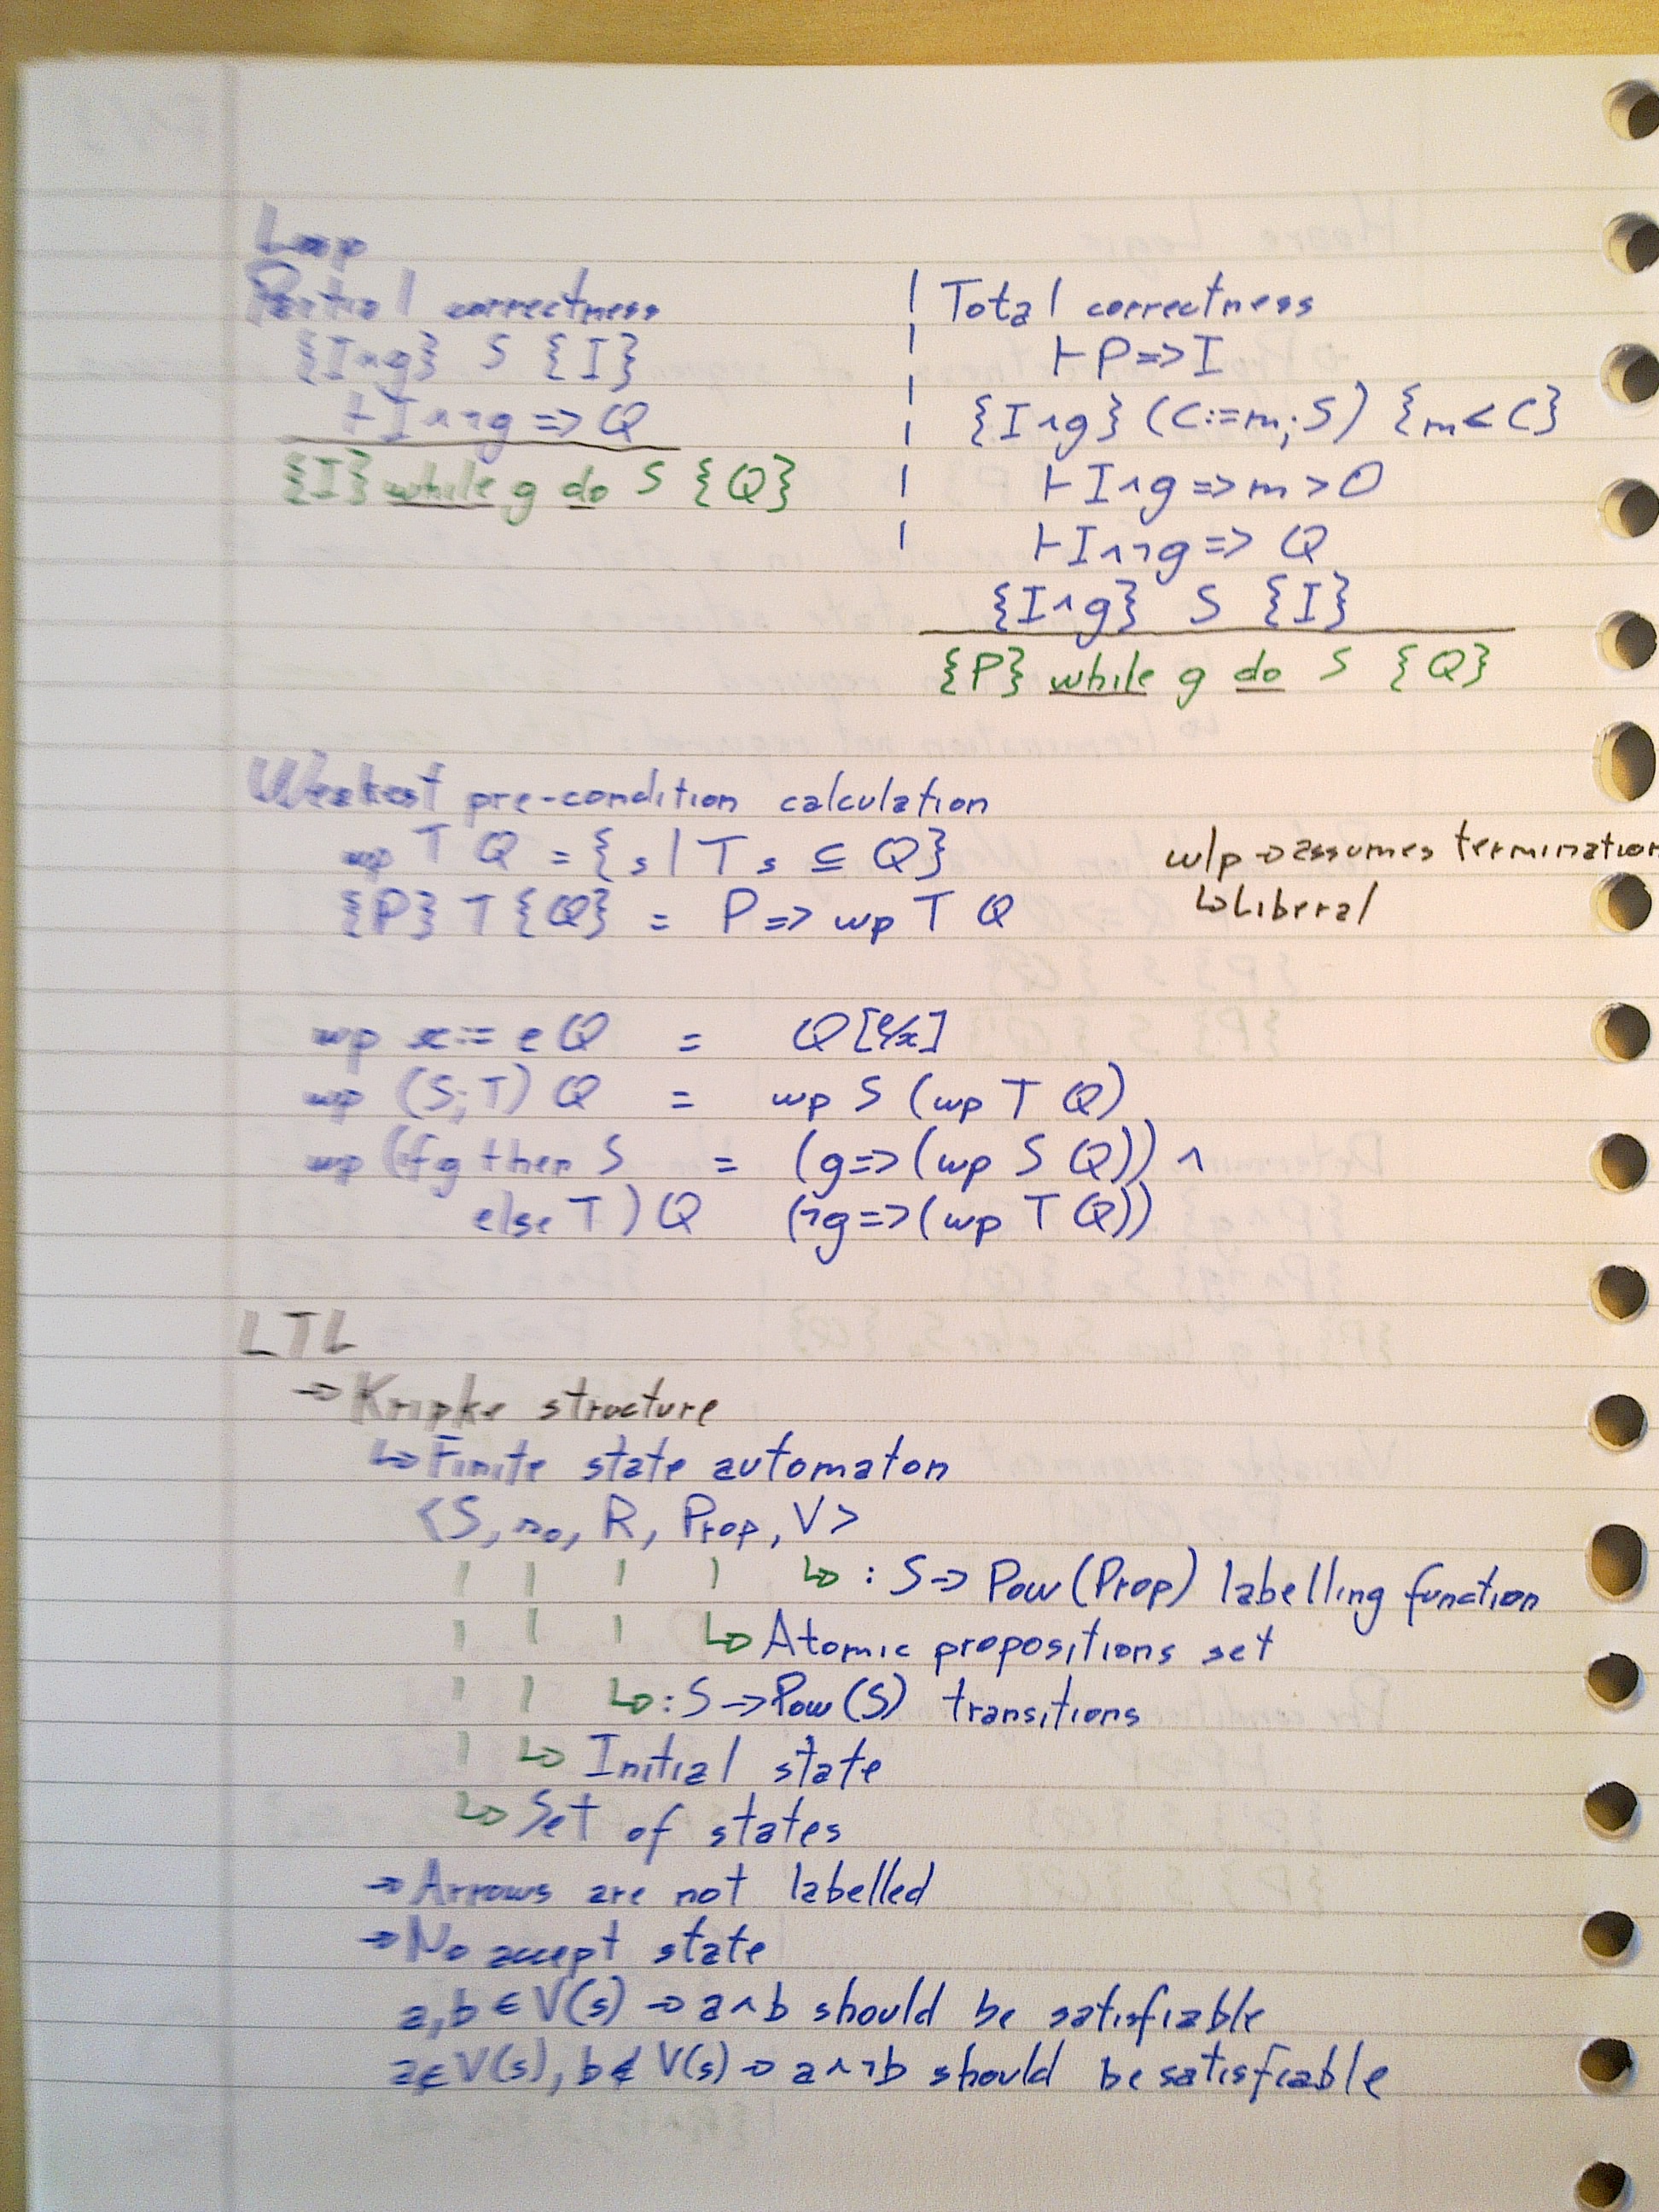 Loop
Partial correctness
{I∧g} S {I}
⊢I∧¬g => Q
{I} while g do S {Q}
Total correctness
⊢P=>I
{I∧g} (C:=m;S) {m<C}
⊢I∧g=>m>0
⊢I∧¬g=> Q
{I∧g} S {I}
{P} while g do S {Q}
Weakest pre-condition calculation
wp T Q = {s | T s ⊆ Q}
{P} T {Q} = P=> wp T Q
wlp → assumes termination
↳ Liberal
wp x:= e Q = Q[e/x]
wp (S;T) Q = wp S (wp T Q)
wp (if g then S = (g=>(wp S Q)) ∧
else T) Q (¬g=>(wp T Q))
LTL
→ Kripke structure
↳ Finite state automaton
<S, s₀, R, Prop, V>
↳ : S→ Pow(Prop) labelling function
↳ Atomic propositions set
↳ : S→Pow(S) transitions
↳ Initial state
↳ Set of states
→ Arrows are not labelled
→ No accept state
a,b ∈ V(s) → a∧b should be satisfiable
a∈V(s), b∉V(s) → a∧¬b should be satisfiable